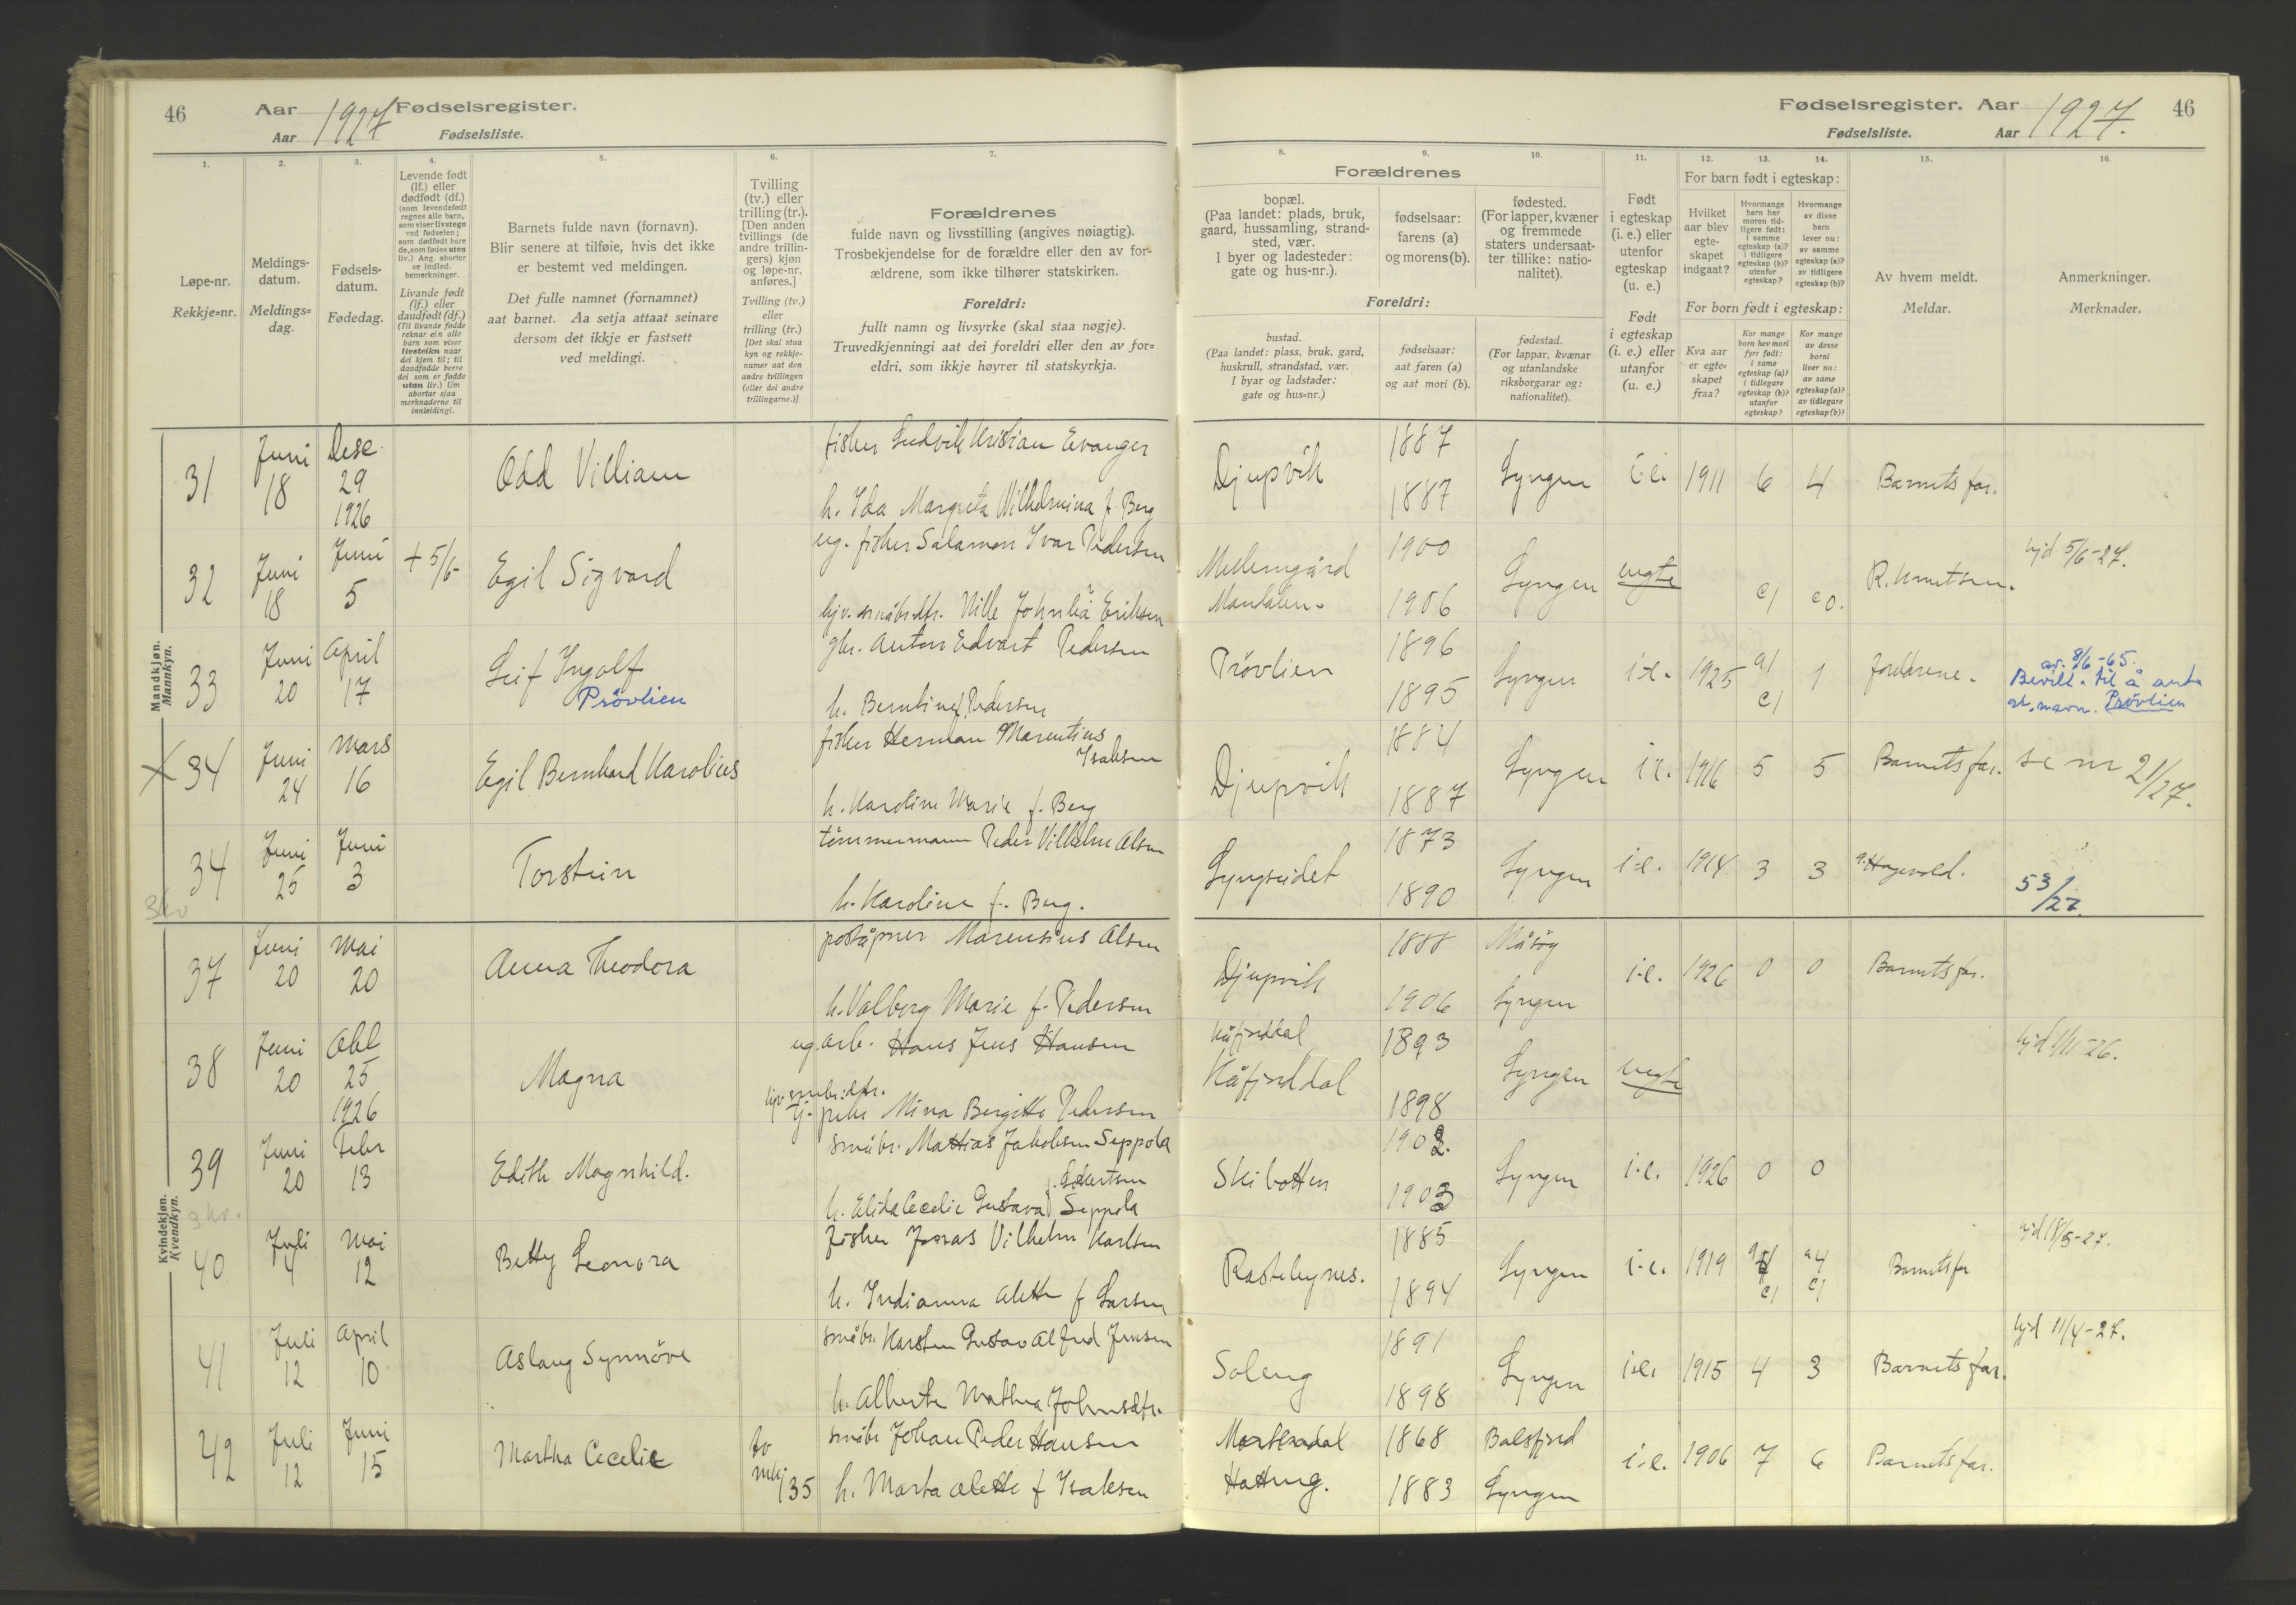 46
Aar 1927 Fødselsregister.
Aar Fødselsliste.
Fødselsregister. Aar 1927. 46
Fødselsliste. Aar
1. 2. 3. 4. 5. 6. 7.
Løpe-nr.
Rekkje=nr.
Meldings-
datum.
Meldings=
dag.
Fødsels-
datum.
Fødedag.
Levende født
(lf.) eller
dødfødt (df.)
(som levendefødt
regnes alle barn,
som viser livstegn
ved fødselen;
som dødfødt bare
de, som fødes uten
liv.) Ang. aborter
se indled.
bemerkninger.
Livande født
(lf.) eller
daudfødt (df.)
(Til livande fødde
reknar ein alle
barn som viser
livsteikn naar
dei kjem til; til
daudfødde berre
dei som er fødde
utan liv.) Um
abortar sjaa
merknaderne til
innleidingi.
Barnets fulde navn (fornavn).
Blir senere at tilføie, hvis det ikke
er bestemt ved meldingen.
Det fulle namnet (fornamnet)
aat barnet. Aa setja attaat seinare
dersom det ikkje er fastsett
ved meldingi.
Tvilling
(tv.) eller
trilling (tr.).
[Den anden
tvillings (de
andre trillin-
gers) kjøn
og løpe-nr.
anføres.]
Tvilling (tv.)
eller
trilling (tr.)
[Det skal staa
kyn og rekkje-
numer aat den
andre tvillingen
(eller dei andre
trillingarne.)]
Forældrenes
fulde navn og livsstilling (angives nøiagtig).
Trosbekjendelse for de forældre eller den av for-
ældrene, som ikke tilhører statskirken.
Foreldri:
fullt namn og livsyrke (skal staa nøgje).
Truvedkjenningi aat dei foreldri eller den av for=
eldri, som ikkje høyrer til statskyrkja.
8. 9. 10. 11. 12. 13. 14. 15. 16.
Forældrenes
bopæl.
(Paa landet: plads, bruk,
gaard, hussamling, strand-
sted, vær.
I byer og ladesteder:
gate og hus-nr.).
fødselsaar:
farens (a)
og morens (b).
fødested.
(For lapper, kvæner
og fremmede
staters undersaat-
ter tillike: natio-
nalitet).
Foreldri:
bustad.
(Paa landet: plass, bruk, gard,
huskrull, strandstad, vær.
I byar og ladstader:
gate og hus=nr.)
fødselsaar:
aat faren (a)
og aat mori (b).
fødestad.
(For lappar, kvænar
og utanlandske
riksborgarar og:
nationalitet).
Født
i egteskap
(i. e.) eller
utenfor
egteskap
(u. e.)
Født
i egteskap
(i. e.) eller
utanfor
(u. e.)
For barn født i egteskap:
Hvilket
aar blev
egte-
skapet
indgaat?
Hvormange
barn har
moren tid-
ligere født:
i samme
egteskap (a)?
i tidligere
egteskap (b)?
utenfor
egteskap?
Hvormange
av disse
barn
lever nu:
av samme
egteskap (a)?
av tidligere
egteskap (b)?
For born født i egteskap:
Kva aar
er egte-
skapet
fraa?
Kor mange
born hev mori
fyrr født:
i same
egteskap (a)?
i tidlegare
egteskap (b)?
utanfor
egteskap?
Kor mange
av desse
borni
liver no:
av same
egteskap (a)?
av tidlegare
egteskap (b)?
Av hvem meldt.
Meldar.
Anmerkninger.
Merknader.
Mandkjøn.
Mannkyn.
31 Juni 18 Dese 29 1926 Odd Villiam fisker Ludvik Kristian Evanger
h. Ida Margreta Vilhelmina f. Berg
Djupvik 1887 1887 Lyngen i.e. 1911 6 4 Barnets far.
32 Juni 18 Juni 5 + 5/6 Egil Sigvard ug. fisker Salamon Ivar Pedersen
Eriksen
Mandalen. 1900 1906 Lyngen uegte c1 c0. R. Knutsen. hjd 5/6-27.
33 Juni 20 April 17 Leif Ingolf
Prövlien
gbr. Anton Edvart Pedersen
h. Berntine f. Pedersen
Prövlien 1896 1895 Lyngen i.e. 1925 a1 c1 1 foreldrene.
av. 8/6-65.
Bevilt. til å anta
sl.navn. Prövlien
X 34 Juni 24 Mars 16 Egil Bernhard Karolius fisker Herman Marentius
Isaksen
h. Karoline Marie f. Berg
Djupvik 1884 1887 Lyngen i.e. 1916 5 5 Barnets far. se nr 21/27.
34 Juni 25 Juni 3 Torstein tömmermann Peder Vilhelm Olsen
h. Karoline f. Berg.
Lyngseidet 1873 1890 Lyngen i.e. 1914 3 3 Hagevold. 53/27.
Kvindekjøn.
Kvendkyn.
37 Juni 20 Mai 20 Anna Theodora poståpner Marensius Olsen
h. Valborg Marie f. Pedersen
Djupvik 1888 1906 Måsöy Lyngen i.e. 1926 0 0 Barnets far.
38 Juni 20 Okt 25 1926 Magna ug. arb. Hans Jens Hansen
pike Mina Bergitte Pedersen
Kåfjorddal
Kåfjorddal 1893 1898 Lyngen uegte
39 Juni 20 Febr 13 Edith Magnhild. småbr. Mathias Jakobsen Seppola
h. Elida Cecelie Gustava Seppola
Skibotten 1902. 1903 Lyngen i.e. 1926 0 0
40 Juli 4 Mai 12 Betty Leonora fisker Jonas Vilhelm Karlsen
h. Indianna Alette f Larsen
Rastebynes. 1885 1894 Lyngen i.e. 1919 c1 a4 c1 Barnets far hjd 18/5-27.
41 Juli 12 April 10 Aslaug Synnöve småbr. Karsten Gustav Alfred Jensen
h. Alberte Mathea Johnsdtr.
Soleng 1891 1898 Lyngen i.e. 1915 4 3 Barnets far. hjd 11/4-27.
42 Juli 12 Juni 15 Martha Cecelie tv mkj 35 småbr Johan Peder Hansen
h. Marta Alette f Isaksen
Mortendal
Hatteng. 1868 1883 Balsfjord Lyngen i.e. 1906 7 6 Barnets far.